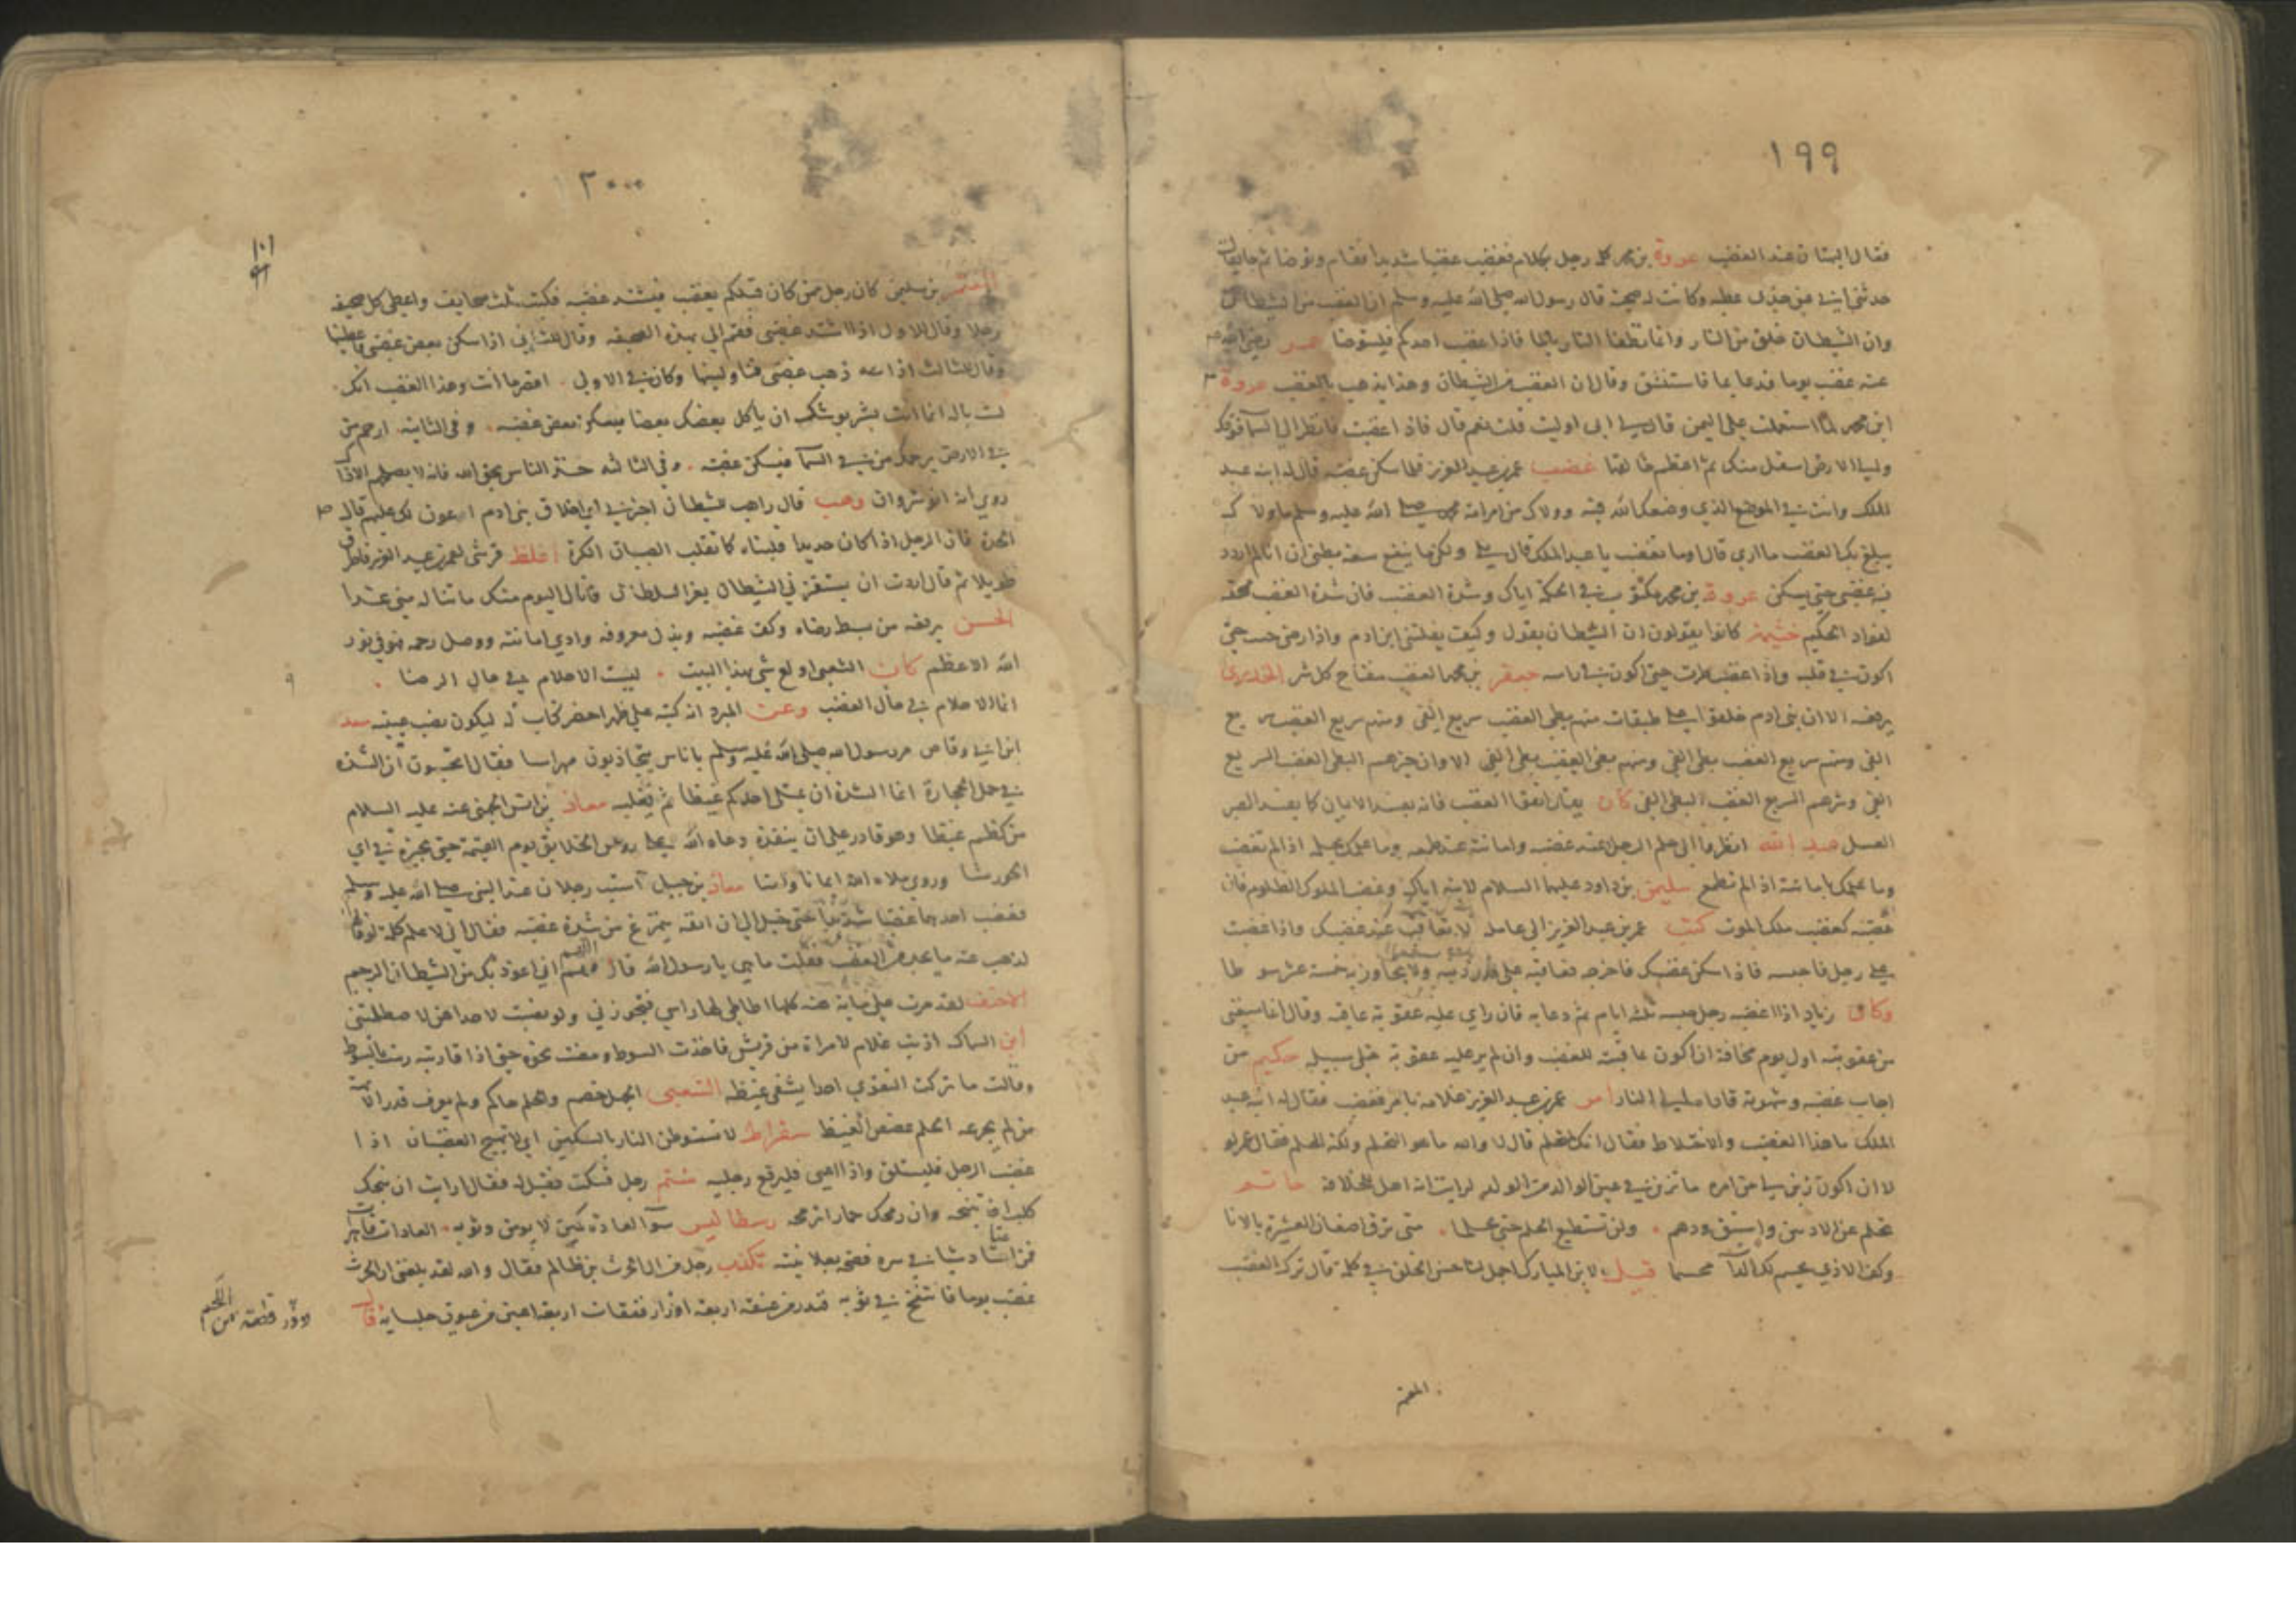 ١٩٩
فقال البيان عند الغضب عروة بن محمد كلمه رجل بكلام فغضب غضبا شديدا فقام وتوضا ثم جا فقال
حدثني ابي عن جدي عطيه وكانت له صحبة قال رسول الله صلى الله عليه وسلم ان الغضب من الشيطان
وان الشيطان خلق من النار وانما تطفا النار بالما فاذا غضب احدكم فليتوضا عمر رضي الله
عنه غضب يوما فدعا بما فاستنشق وقال ان الغضب من الشيطان وهذا يذهب بالغضب عروة
ابن محمد لما استعملت على اليمن قال لي ابي اوليت قلت نعم قال فاذا غضبت فانظر الى السما فوقك
والى الارض اسفل منك ثم اعظم خالقها غضب عمر بن عبد العزيز فلما سكن غضبه قال له ابنه عبد
الملك وانت في الموضع الذي وضعك الله فيه وولاك من امر امة محمد صلى الله عليه وسلم ما ولاك
يبلغ بك الغضب ما ارى قال اوما تغضب يا عبد الملك قال بلى ولكن ما ينفع سعة بطني ان انا لم اردد
فيه غضبي حتى يسكن عروة بن محمد مكتوب في الحكمة اياك وشدة الغضب فان شدة الغضب ممحقة
لفواد الحكيم خثيمة كانوا يقولون ان الشيطان يقول وكيف يغلبني ابن ادم واذا رضي جيت حتى
اكون في قلبه واذا غضب طرت حتى اكون في راسه جعفر بن محمد الغضب مفتاح كل شر الخدري
يرفعه الا ان بني ادم خلقوا على طبقات منهم بطي الغضب سريع الفي ومنهم سريع الغضب سريع
الفي ومنهم سريع الغضب بطي الفي ومنهم بطي الغضب بطي الفي الا وان خيرهم البطي الغضب السريع
الفي وشرهم السريع الغضب البطي الفي كان يقال اتقوا الغضب فانه يفسد الايمان كما يفسد الصبر
العسل عبد الله انظروا الى حلم الرجل عند غضبه وامانته عند طمعه وما علمك بحلمه اذا لم يغضب
وما علمك بامانته اذا لم يطمع سليمن بن داود عليهما السلام لابنه اياك وغضب الملوك الظلوم فان
غضبه كغضب ملك الموت كتب عمر بن عبد العزيز الى عامله لا تعاقب عند غضبك واذا غضبت
على رجل فاحبسه فاذا سكن غضبك فاخرجه فعاقبه على قدر ذنبه ولا تجاوز به خمسة عشر سوطا
وكان زياد اذا اغضبه رجل حبسه ثلثة ايام ثم دعا به فان راي عليه عقوبة عاقبه وقال انما منعني
من عقوبته اول يوم مخافة ان اكون عاقبته للغضب وان لم ير عليه عقوبة خلى سبيله حكيم من
اجاب غضبه وشهوته قاداه الى النار امر عمر بن عبد العزيز غلامه بامر فغضب فقال له ابنه عبد
الملك ما هذا الغضب والاختلاط فقال انك لتتحلم قال لا والله ما هو التحلم ولكنه الحلم فقال عمر لو
لا ان اكون زين لي من امره ما يزين في عين الوالد من الولد لرايت انه اهل للخلافة حاتم
تحلم عن الادنين واستبق ودهم ۰ ولن تستطيع الحلم حتى تحلما ۰ متى ترق اضغان العشيرة بالانا
وكف الاذى يحسم لك الدا محسما قيل لابن المبارك اجمل لنا حسن الخلق في كلمة قال ترك الغضب
المعتمر
٢٠٠
١٠١
المعتمر بن سليمن كان رجل ممن كان قبلكم يغضب فيشتد غضبه فكتب ثلث صحايف واعطى كل صحيفه
رجلا وقال للاول اذا اشتد غضبي فقم الي بهذه الصحيفه وقال للثاني اذا سكن بعض غضبي فاعطنيها
وقال للثالث اذا ذهب غضبي فناولنيها وكان في الاولى ۰ اقصر ما انت وهذا الغضب انك
لست باله انما انت بشر يوشك ان ياكل بعضك بعضا فيسكن بعض غضبه ۰ وفي الثانية ارحم من
في الارض يرحمك من في السما فيسكن غضبه ۰ وفي الثالثه خذ الناس بحق الله فانه لا يصلحهم الا ذا
روي انه انوشروان وهب قال راهب لشيطان اخبرني اي اخلاق بني ادم اعون لك عليهم قال
الحدة فان الرجل اذا كان حديدا قلبناه كما تقلب الصبيان الكرة اغلظ قرشي لعمر بن عبد العزيز فاطرق
طويلا ثم قال اردت ان يستفزني الشيطان بعز السلطان فانال اليوم منك ما تناله مني غدا
الحسن يرفعه من بسط رضاه وكف غضبه وبذل معروفه وادى امانته ووصل رحمه فهو في نور
الله الاعظم كان الشعبي اولع شي بهذا البيت ۰ ليست الاحلام في حال الرضا ۰
انما الاحلام في حال الغضب وعن المبرد انه كتبه على ظهر احضر كتاب له ليكون نصب عينيه سعد
ابن ابي وقاص مر رسول الله صلى الله عليه وسلم باناس يتجاذبون مهراسا فقال اتحسبون ان الشدة
في حمل الحجارة انما الشدة ان يمتلي احدكم غيظا ثم يغلبه معاذ بن انس الجهني عنه عليه السلام
من كظم غيظا وهو قادر على ان ينفذه دعاه الله على رءوس الخلايق يوم القيمة حتى يخيره في اي
الحور شا وروي ملاه الله ايمانا وامنا معاذ بن جبل استب رجلان عند النبي صلى الله عليه وسلم
فغضب احدهما غضبا شديدا حتى خيل الي ان انفه يتمزع من شدة غضبه فقال اني لاعلم كلمة لو قالها
لذهب عنه ما يجد من الغضب فقلت ما هي يا رسول الله قال اللهم اني اعوذ بك من الشيطان الرجيم
الاحنف
ابن السماك اذنب غلام لامراة من قريش فاخذت السوط ومضت نحوه حتى اذا قاربته رمت بالسوط
وقالت ما تركت التقوى احدا يشفي غيظه الشعبي الجهل خصم والحلم حاكم ولم يعرف قدر الابهة
من لم يجرعه الحلم غصص الغيظ سقراط لا تستوطن النار بالسكين اي لا تهيج الغضبان اذا
غضب الرجل فليستلق واذا اعيى فليرفع رجليه شتم رجل فسكت فقيل له فقال ارايت ان نبحك
كلب اف تنبحه وان رمحك حمار اترمحه رسطاليس سو العادة كمين لا يومن وثوبه ۰ العادات قاهرات
فمن اعتاد شيا في سره فضحه بعلانيته تكذب رجل من ال الحرث بن ظالم فقال والله لقد بلغني ان الحرث
غضب يوما فانتفخ في ثوبه فندر من عنقه اربعة ازرار ففقات اربعة اعين من عيون جلسايه قال